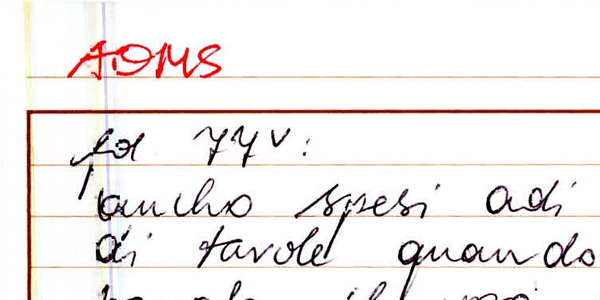 AOMS
fol 77v:
ancho spesi adi
di tavole quando